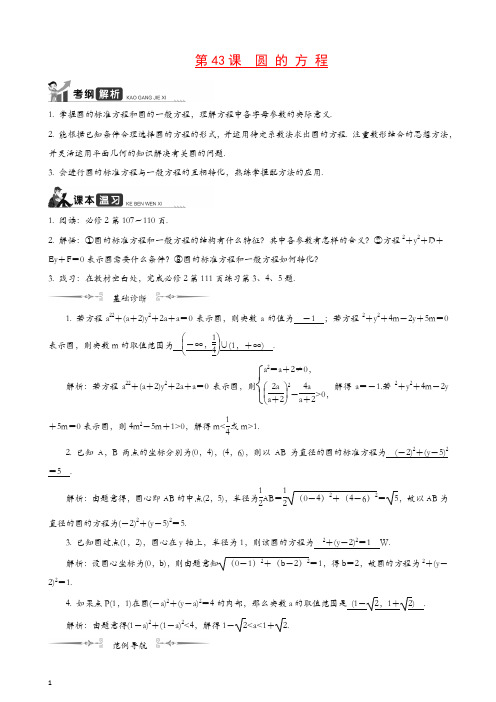 第43课 圆 的 方 程
考纲 解析 KAO GANG JIE XI
1. 掌握圆的标准方程和圆的一般方程，理解方程中各字母参数的实际意义.
2. 能根据已知条件合理选择圆的方程的形式，并运用待定系数法求出圆的方程. 注重数形结合的思想方法，
并灵活运用平面几何的知识解决有关圆的问题.
3. 会进行圆的标准方程与一般方程的互相转化，熟练掌握配方法的应用.
课本 温习 KE BEN WEN XI
1. 阅读：必修2第107～110页.
2. 解悟：①圆的标准方程和一般方程的结构有什么特征？其中各参数有怎样的含义？②方程²＋y²＋D＋
Ey＋F＝0表示圆需要什么条件？③圆的标准方程和一般方程如何转化？
3. 践习：在教材空白处，完成必修2第111页练习第3、4、5题.
基础诊断
1. 若方程a²²＋(a＋2)y²＋2a＋a＝0表示圆，则实数a的值为 －1 ；若方程²＋y²＋4m－2y＋5m＝0
表示圆，则实数m的取值范围为 (－∞，1/4)∪(1，＋∞) .
解析：若方程a²²＋(a＋2)y²＋2a＋a＝0表示圆，则{a²＝a＋2≠0，(2a/(a＋2))²－4a/(a＋2)>0，解得a＝－1.若²＋y²＋4m－2y
＋5m＝0表示圆，则4m²－5m＋1>0，解得m<1/4或m>1.
2. 已知A，B两点的坐标分别为(0，4)，(4，6)，则以AB为直径的圆的标准方程为 (－2)²＋(y－5)²
＝5 .
解析：由题意得，圆心即AB的中点(2，5)，半径为1/2AB＝1/2√((0－4)²＋(4－6)²)＝√5，故以AB为
直径的圆的方程为(－2)²＋(y－5)²＝5.
3. 已知圆过点(1，2)，圆心在y轴上，半径为1，则该圆的方程为 ²＋(y－2)²＝1 W.
解析：设圆心坐标为(0，b)，则由题意知√((0－1)²＋(b－2)²)＝1，得b＝2，故圆的方程为²＋(y－
2)²＝1.
4. 如果点P(1，1)在圆(－a)²＋(y－a)²＝4的内部，那么实数a的取值范围是 (1－√2，1＋√2) .
解析：由题意得(1－a)²＋(1－a)²<4，解得1－√2<a<1＋√2.
范例导航
1